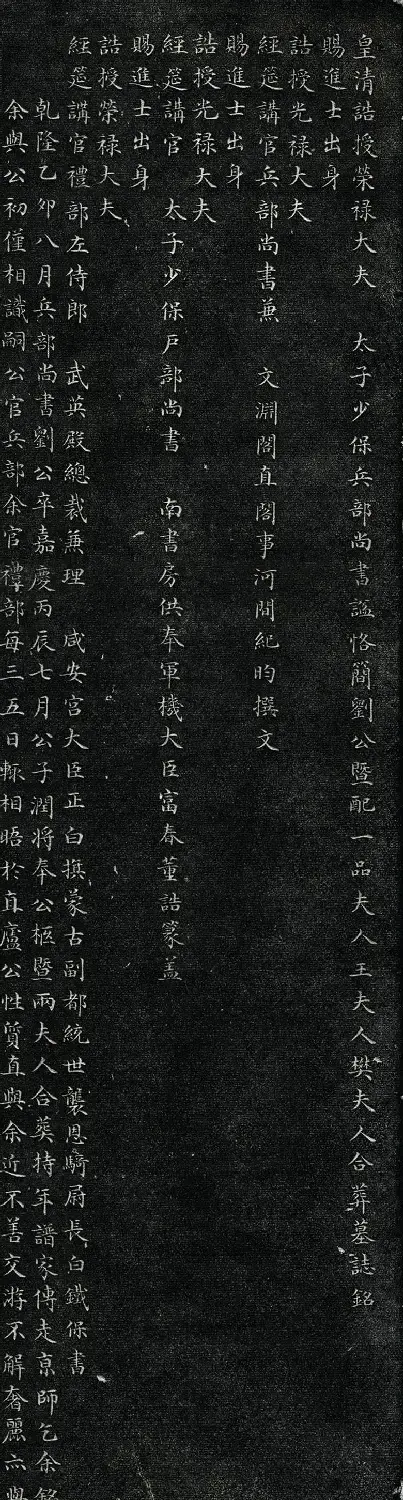 皇清誥授榮祿大夫　太子少保兵部尚書謚恪簡劉公暨配一品夫人王夫人樊夫人合葬墓誌銘
賜進士出身
誥授光祿大夫
經筵講官兵部尚書兼　文淵閣直閣事河間紀昀撰文
賜進士出身
誥授光祿大夫
經筵講官　太子少保戶部尚書　南書房供奉軍機大臣富春董誥篆盖
賜進士出身
誥授榮祿大夫
經筵講官禮部左侍郎　武英殿總裁兼理　咸安宮大臣正白旗蒙古副都統世襲恩騎尉長白鐵保書
乾隆乙卯八月兵部尚書劉公卒嘉慶丙辰七月公子潤將奉公柩暨兩夫人合葬持年譜家傳走京師乞余銘
余與公初僅相識嗣公官兵部余官禮部每三五日輒相晤於直廬公性質直與余近不善交游不解奢麗亦與